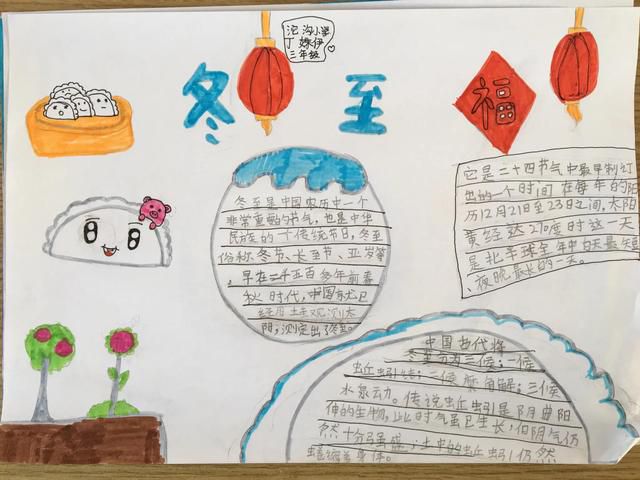 沱沟小学
丁 伊
三年级
冬至
福
冬至是中国农历中一个
非常重要的节气，也是中华
民族的一个传统节日，冬至
俗称冬节、长至节、亚岁等，
早在二千五百多年前春
秋时代，中国有尤已
经用土圭观测太
阳，测定出了冬至。
它是二十四节气中最早制订
出的一个时间在每年的阳
历12月21日至23日之间，太阳
黄经达270度时这一天
是北半球全年中白天最短
、夜晚最长的一天。
中国古代将
冬至分为三候：一候
蚯蚓结；二候麋角解；三候
水泉动。传说蚯蚓是阴曲阳
伸的生物，此时气虽已生长，但阴气仍
然十分强盛；土中的蚯蚓仍然
蜷缩着身体。